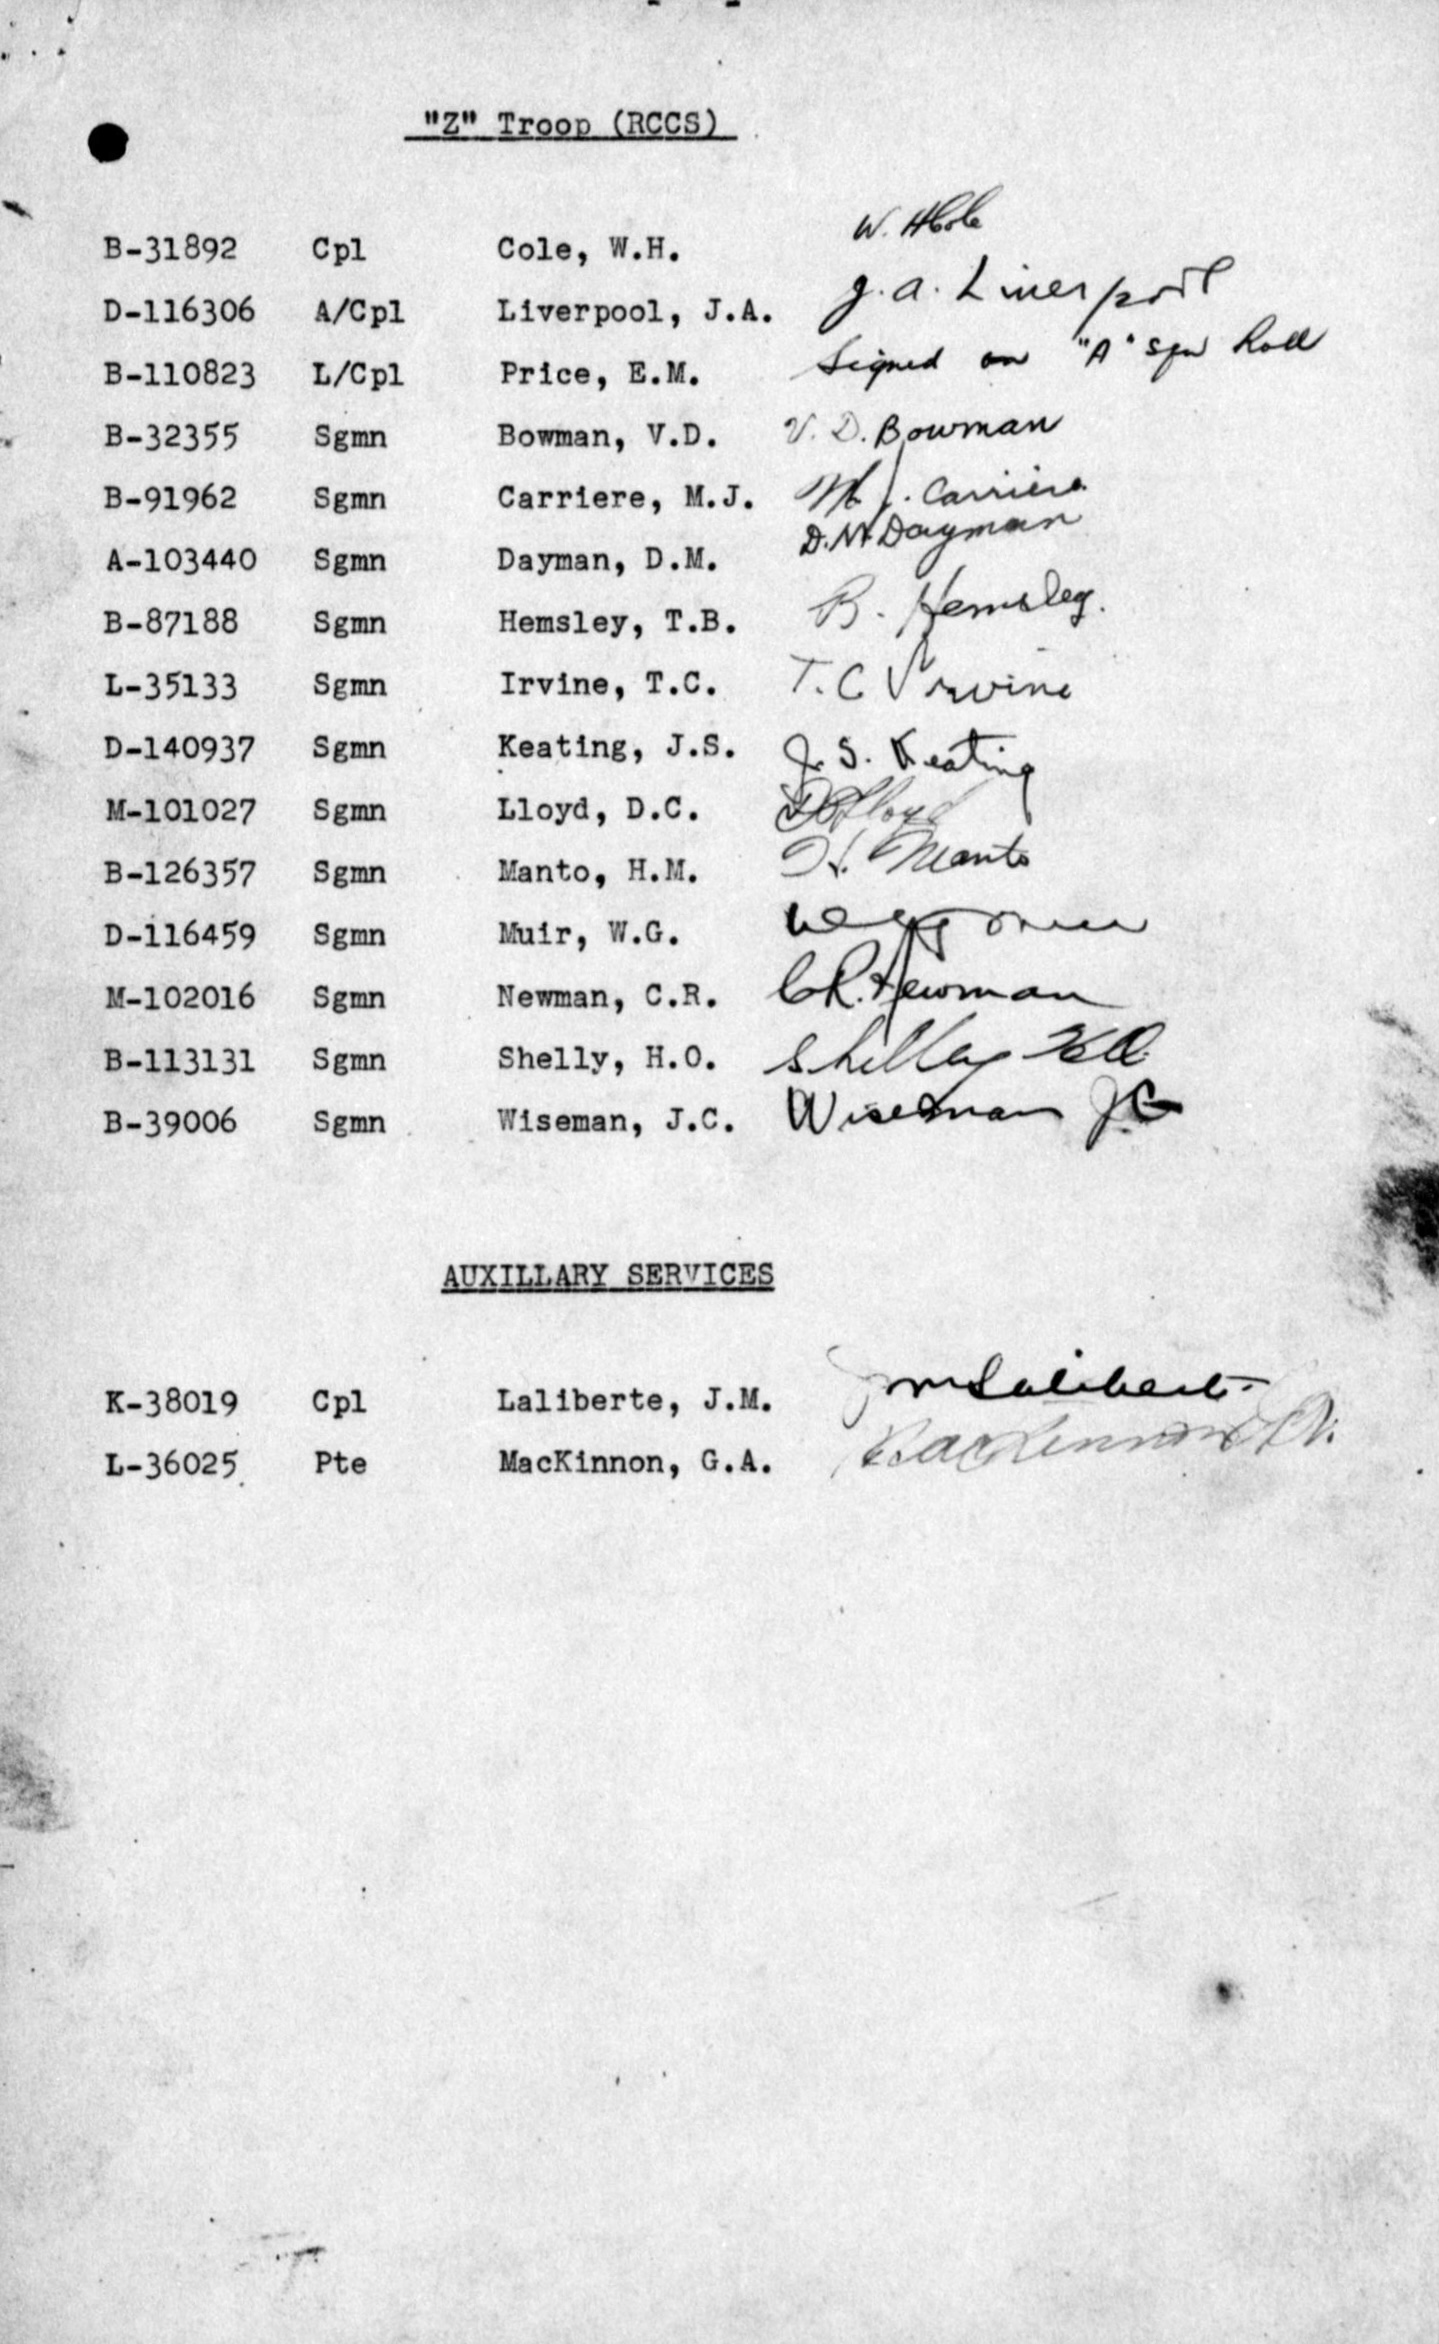 "Z" Troop (RCCS)
B-31892 Cpl Cole, W.H. W. H Cole
D-116306 A/Cpl Liverpool, J.A. J. A. Liverpool
B-110823 L/Cpl Price, E.M. Signed on "A" Sqn Roll
B-32355 Sgmn Bowman, V.D. V. D. Bowman
B-91962 Sgmn Carriere, M.J. M J. Carriere
A-103440 Sgmn Dayman, D.M. D. M Dayman
B-87188 Sgmn Hemsley, T.B. B. Hemsley.
L-35133 Sgmn Irvine, T.C. T. C Irvine
D-140937 Sgmn Keating, J.S. J. S. Keating
M-101027 Sgmn Lloyd, D.C. DC Lloyd
B-126357 Sgmn Manto, H.M. H. Manto
D-116459 Sgmn Muir, W.G. Muir
M-102016 Sgmn Newman, C.R. C R. Newman
B-113131 Sgmn Shelly, H.O. Shelley HO.
B-39006 Sgmn Wiseman, J.C. Wiseman JC
AUXILLARY SERVICES
K-38019 Cpl Laliberte, J.M. JM Laliberte
L-36025 Pte MacKinnon, G.A. MacKinnon